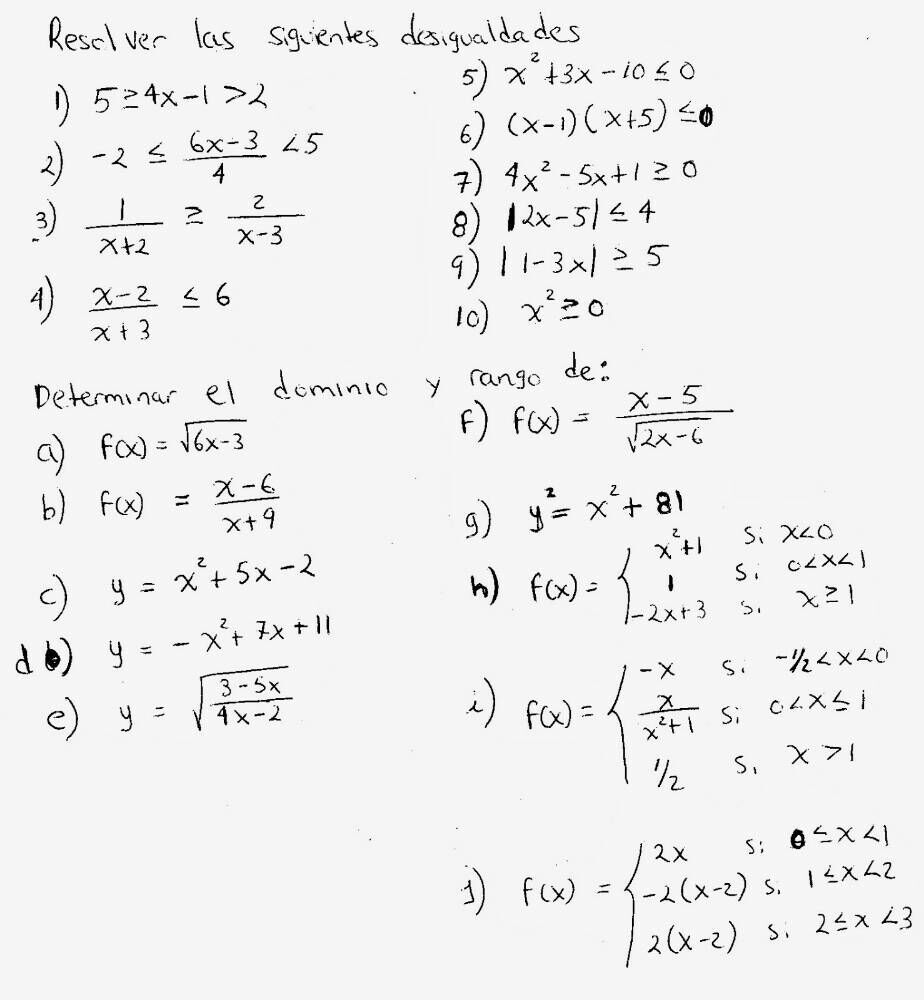 Resolver las siguientes desigualdades
1) 5 ≥ 4x - 1 > 2
2) -2 ≤ (6x-3)/4 < 5
3) 1/(x+2) ≥ 2/(x-3)
4) (x-2)/(x+3) ≤ 6
5) x² + 3x - 10 ≤ 0
6) (x-1)(x+5) ≤ 0
7) 4x² - 5x + 1 ≥ 0
8) |2x-5| ≤ 4
9) |1-3x| ≥ 5
10) x² ≥ 0
Determinar el dominio y rango de:
a) f(x) = √(6x-3)
b) f(x) = (x-6)/(x+9)
c) y = x² + 5x - 2
d) y = -x² + 7x + 11
e) y = √((3-5x)/(4x-2))
f) f(x) = (x-5)/√(2x-6)
g) y² = x² + 81
h) f(x) = { x²+1 si x<0
1 si 0<x<1
-2x+3 si x≥1
i) f(x) = { -x si -1/2<x<0
x/(x²+1) si 0<x≤1
1/2 si x>1
j) f(x) = { 2x si 0≤x<1
-2(x-2) si 1≤x<2
2(x-2) si 2≤x<3